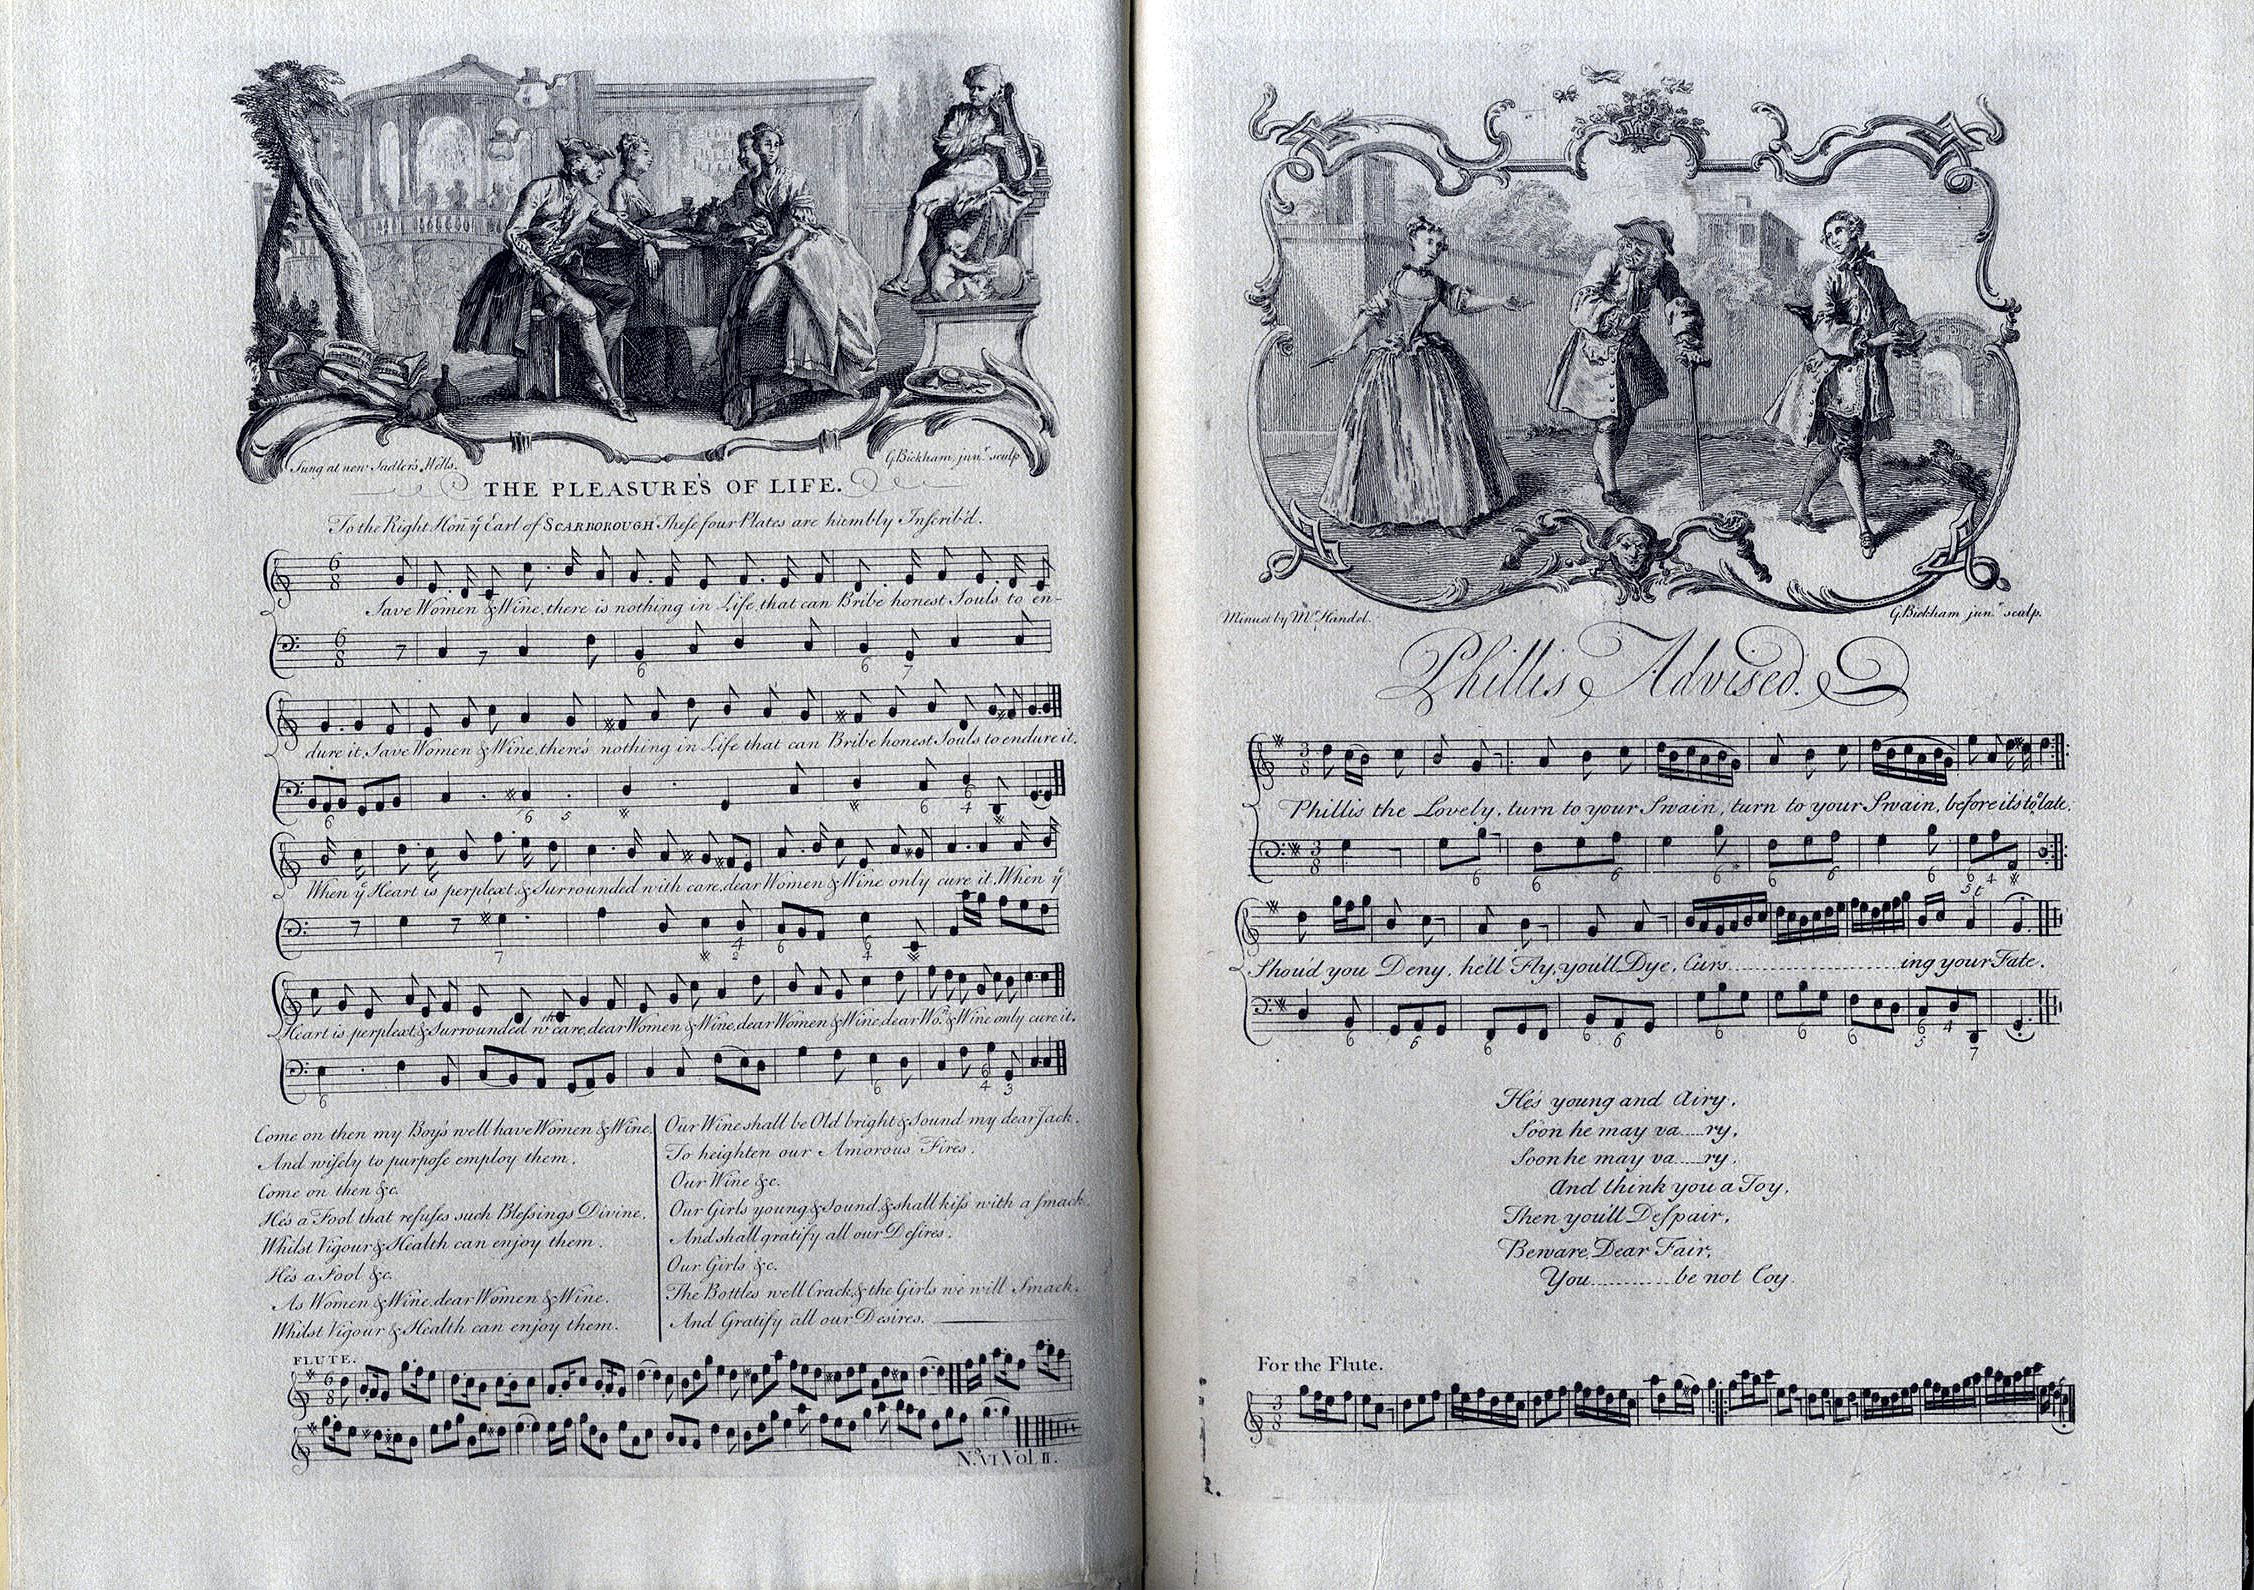 Sung at new Sadler's Wells.
G. Bickham jun.r sculp
THE PLEASURE'S OF LIFE.
To the Right Hon.n ye Earl of SCARBOROUGH These four Plates are humbly Inscrib'd.
6 8
Save Women & Wine, there is nothing in Life, that can Bribe honest Souls to en-
6 8
dure it, Save Women & Wine, there's nothing in Life that can Bribe honest Souls to endure it.
When ye Heart is perplext, & Surrounded with care, dear Women & Wine only cure it, When ye
Heart is perplext, & Surrounded wth care, dear Women & Wine, dear Women & Wine, dear Wo.n & Wine only cure it.
Come on then my Boy's we'll have Women & Wine,
And wisely to purpose employ them,
Come on then &c.
He's a Fool that refuses such Blessings Divine,
Whilst Vigour & Health can enjoy them.
He's a Fool &c.
As Women & Wine, dear Women & Wine.
Whilst Vigour & Health can enjoy them.
Our Wine shall be Old bright & Sound my dear Jack,
To heighten our Amorous Fires.
Our Wine &c.
Our Girls young & Sound, & shall kiss with a smack
And shall gratify all our Desires.
Our Girls &c.
The Bottles we'll Crack, & the Girls we will Smack,
And Gratify all our Desires.
FLUTE.
6 8
N.o VI Vol. II.
Minuet by Mr. Handel.
G. Bickham jun.r sculp.
Phillis Advised.
3 8
Phillis the Lovely, turn to your Swain, turn to your Swain, before it's too late;
3 8
Shou'd you Deny, he'll Fly, you'll Dye, Curs....................ing your Fate.
He's young and Airy,
Soon he may va....ry,
Soon he may va....ry,
And think you a Toy,
Then you'll Despair,
Beware, Dear Fair,
You...........be not Coy.
For the Flute.
3 8